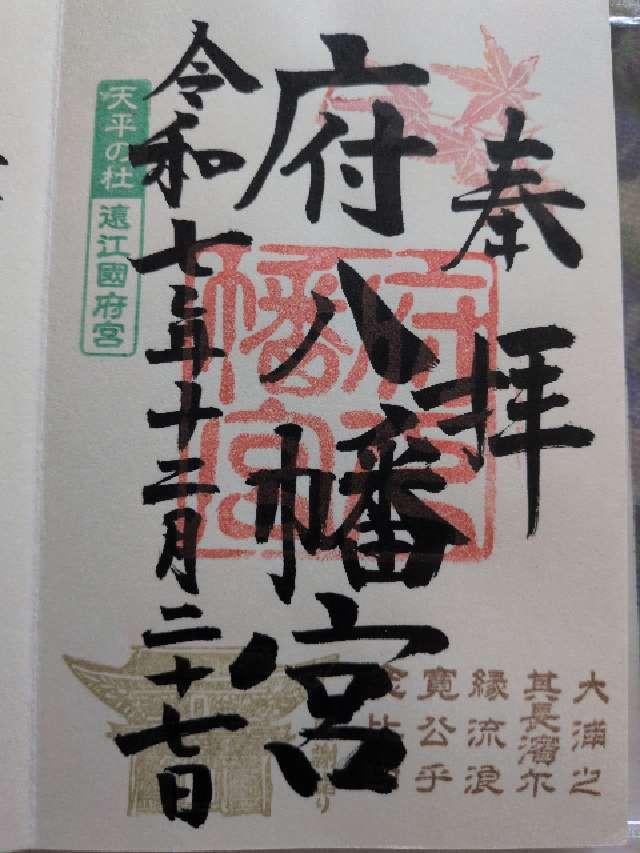 奉拝
府八幡宮
令和七年十二月二十七日
天平の杜
遠江國府宮
府八
幡宮
大浦之
其長濱尓
縁流浪
寛公乎